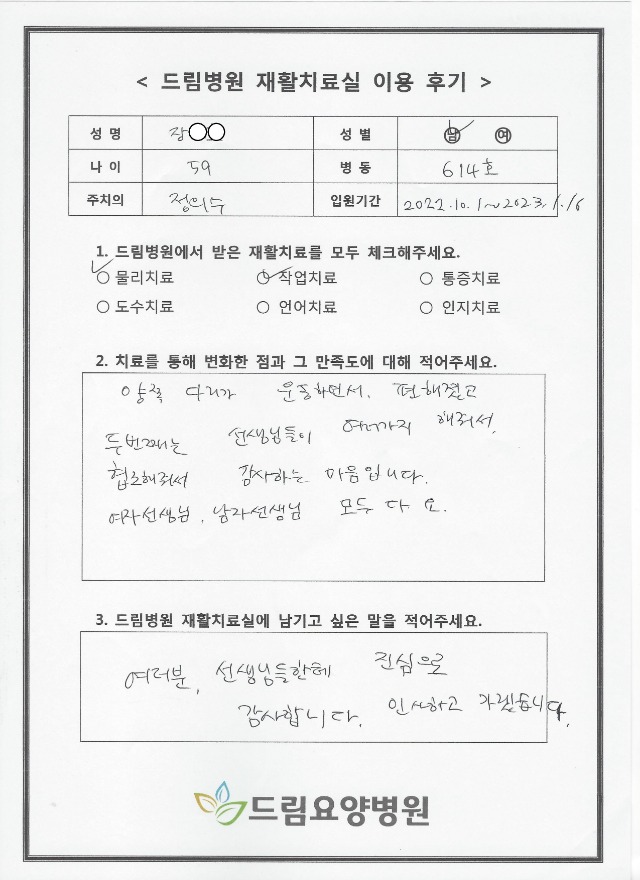 < 드림병원 재활치료실 이용 후기 >
성 명 장○○ 성 별 남 여
나 이 59 병 동 614호
주치의 정의수 입원기간 2022.10.1~2023.1.16
1. 드림병원에서 받은 재활치료를 모두 체크해주세요.
○ 물리치료 ○ 작업치료 ○ 통증치료
○ 도수치료 ○ 언어치료 ○ 인지치료
2. 치료를 통해 변화한 점과 그 만족도에 대해 적어주세요.
양쪽 다리가 운동하면서, 편해졌고
두번째는 선생님들이 여러가지 해줘서,
협조해줘서 감사하는 마음입니다.
여자선생님, 남자선생님 모두 다 요.
3. 드림병원 재활치료실에 남기고 싶은 말을 적어주세요.
여러분, 선생님들한테 진심으로
감사합니다. 인사하고 가겠습니다.
드림요양병원